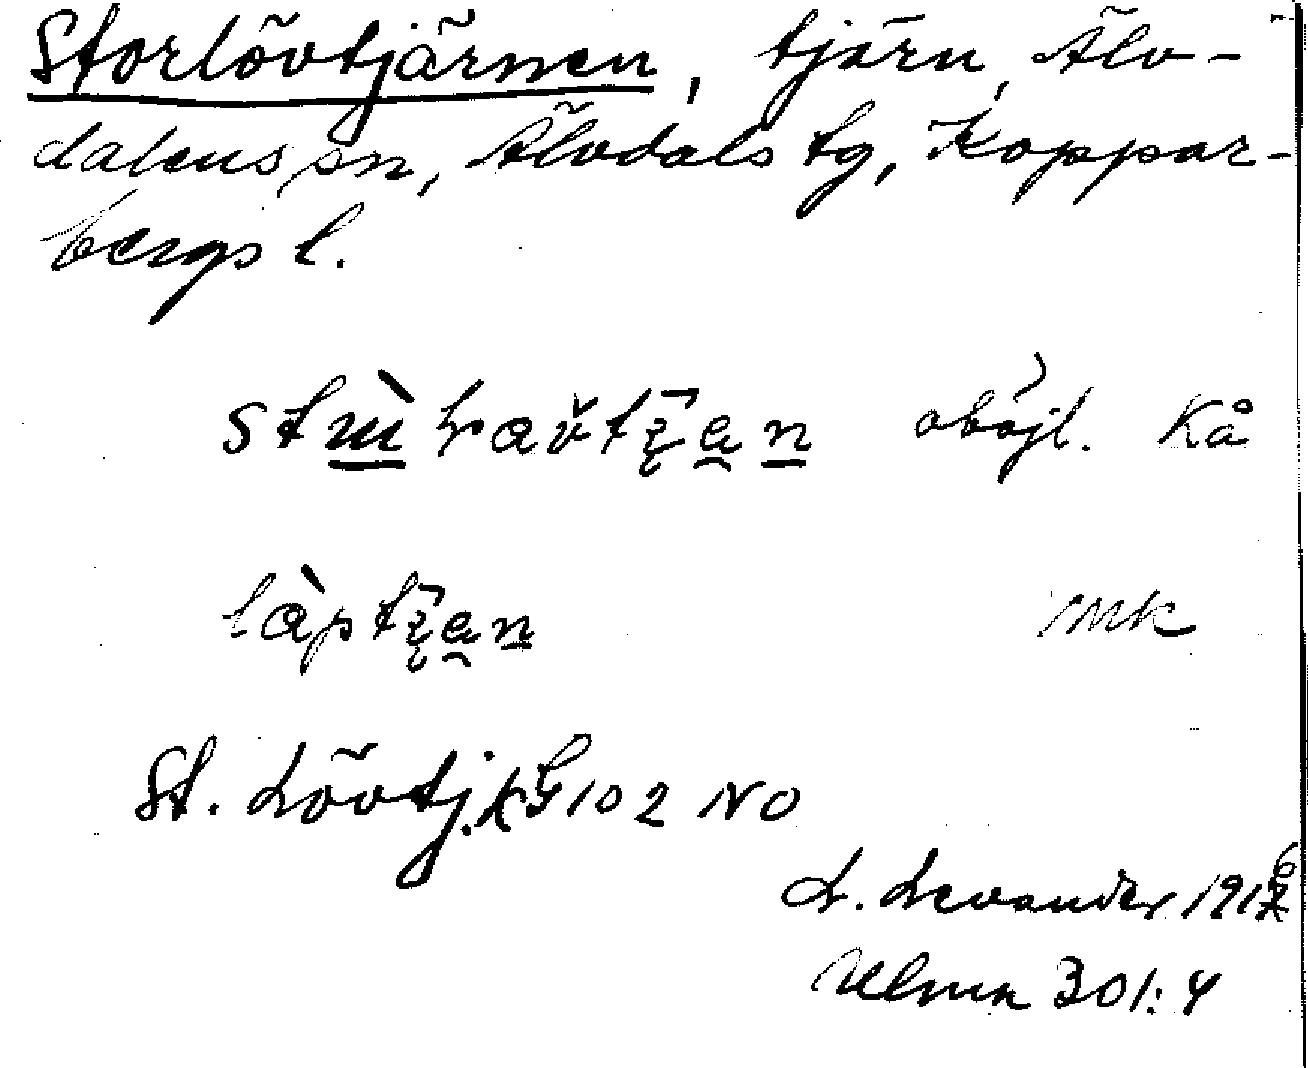 Storlövtjärnen, tjärn, Älv-
dalens sn, Älvdals tg, Koppar-
bergs l.
oböjl. Kå
Mk
St. Lövtj. 102 NO
L. Levander 1916
Ulma 301:4